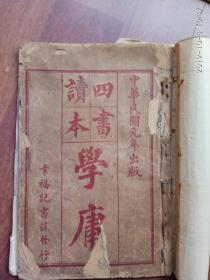 中華民國元年出版
四書
讀本
學庸
章福記書莊發行